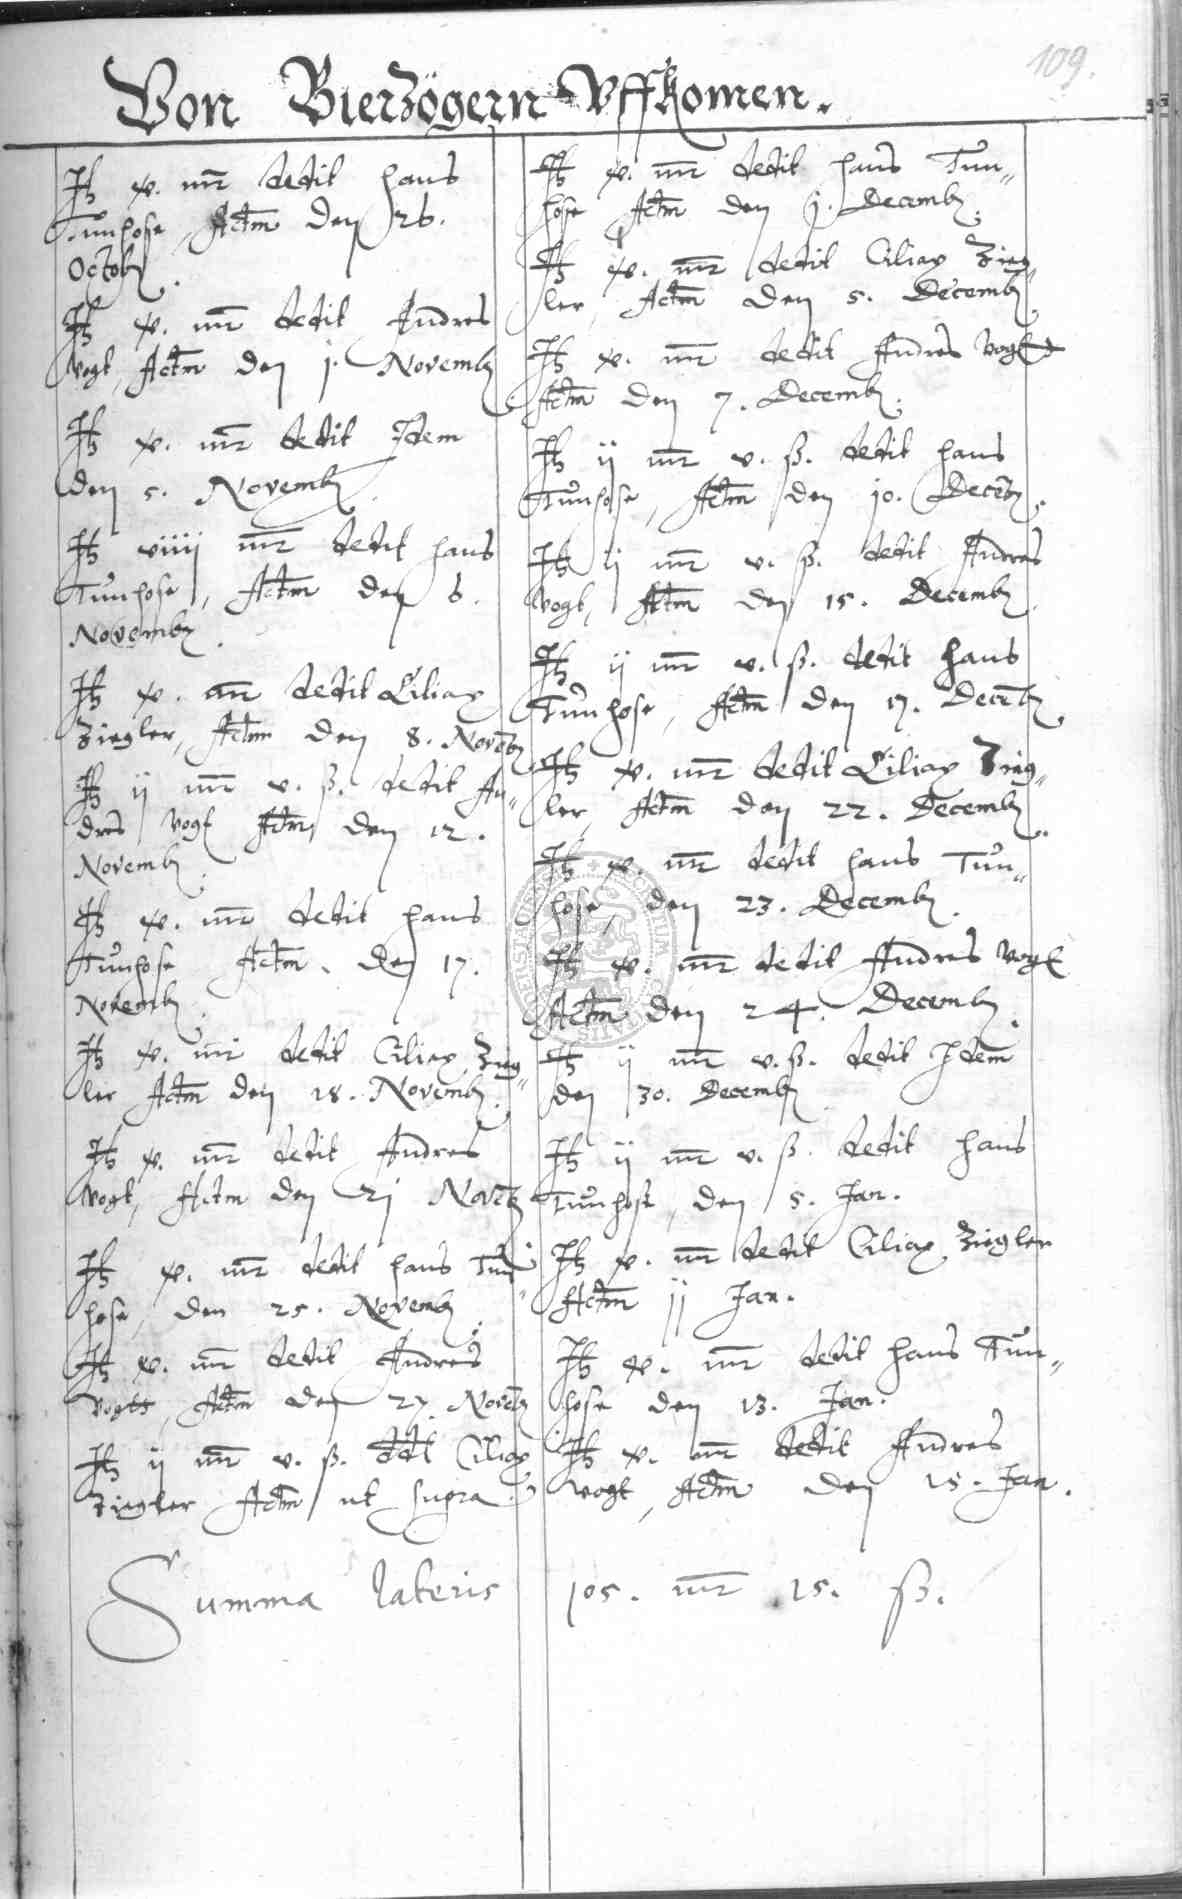 109.
Von Bierzögern Uffkomen.
It xv. mr dedit Hans
Tunhose, Actm den 26.
Octob.
It xv. mr dedit Andres
Vogt, Actm den j. Novemb
It xv. mr dedit Idem
den 5. Novemb
It viiij mr dedit Hans
Tunhose, Actm den 6.
Novemb.
It xv. mr dedit Ciliax
Ziegler, Actm den 8. Novēb
It ij mr v. ß. dedit An„
dres Vogt Actm den 12.
Novemb.
It xv. mr dedit Hans
Tunhose Actm. den 17.
Novemb.
It xv. mr dedit Ciliax Zieg„
ler Actm den 18. Novemb.
It xv. mr dedit Andres
Vogt, Actm den 2j Novēb
It xv. mr dedit Hans Tun„
hose, den 25. Novemb
It xv. mr dedit Andres
Vogts, Actm den 27 Novēb
It ij mr v. ß. ddt Ciliax
Ziegler Actm ut supra.
It xv. mr dedit Hans Tun„
hose Actm den j. Decemb.
It xv. mr dedit Ciliax Zieg„
ler, Actm den 5. Decemb
It xv. mr dedit Andres Vogt
Actm den 7. Decemb.
It ij mr v. ß. dedit Hans
Tunhose, Actm den 10. Decēb.
It ij mr v. ß. dedit Andres
Vogt, Actm den 15. Decemb
It ij mr v. ß. dedit Hans
Tunhose, Actm den 17. Decēb
It xv. mr dedit Ciliax Zieg„
ler, Actm den 22. Decemb.
It xv. mr dedit Hans Tun„
hose, den 23. Decemb.
It xv. mr dedit Andres Vogt
Actm den 24. Decemb.
It ij mr v. ß. dedit Idem
den 30. Decemb
It ij mr v. ß. dedit Hans
Tunhose, den 5. Jan.
It xv. mr dedit Ciliax Ziegler
Actm jj Jan.
It xv. mr dedit Hans Tun„
hose den 13. Jan.
It xv. mr dedit Andres
Vogt, Actm den 15. Jan.
Summa lateris 105. mr 15. ß.